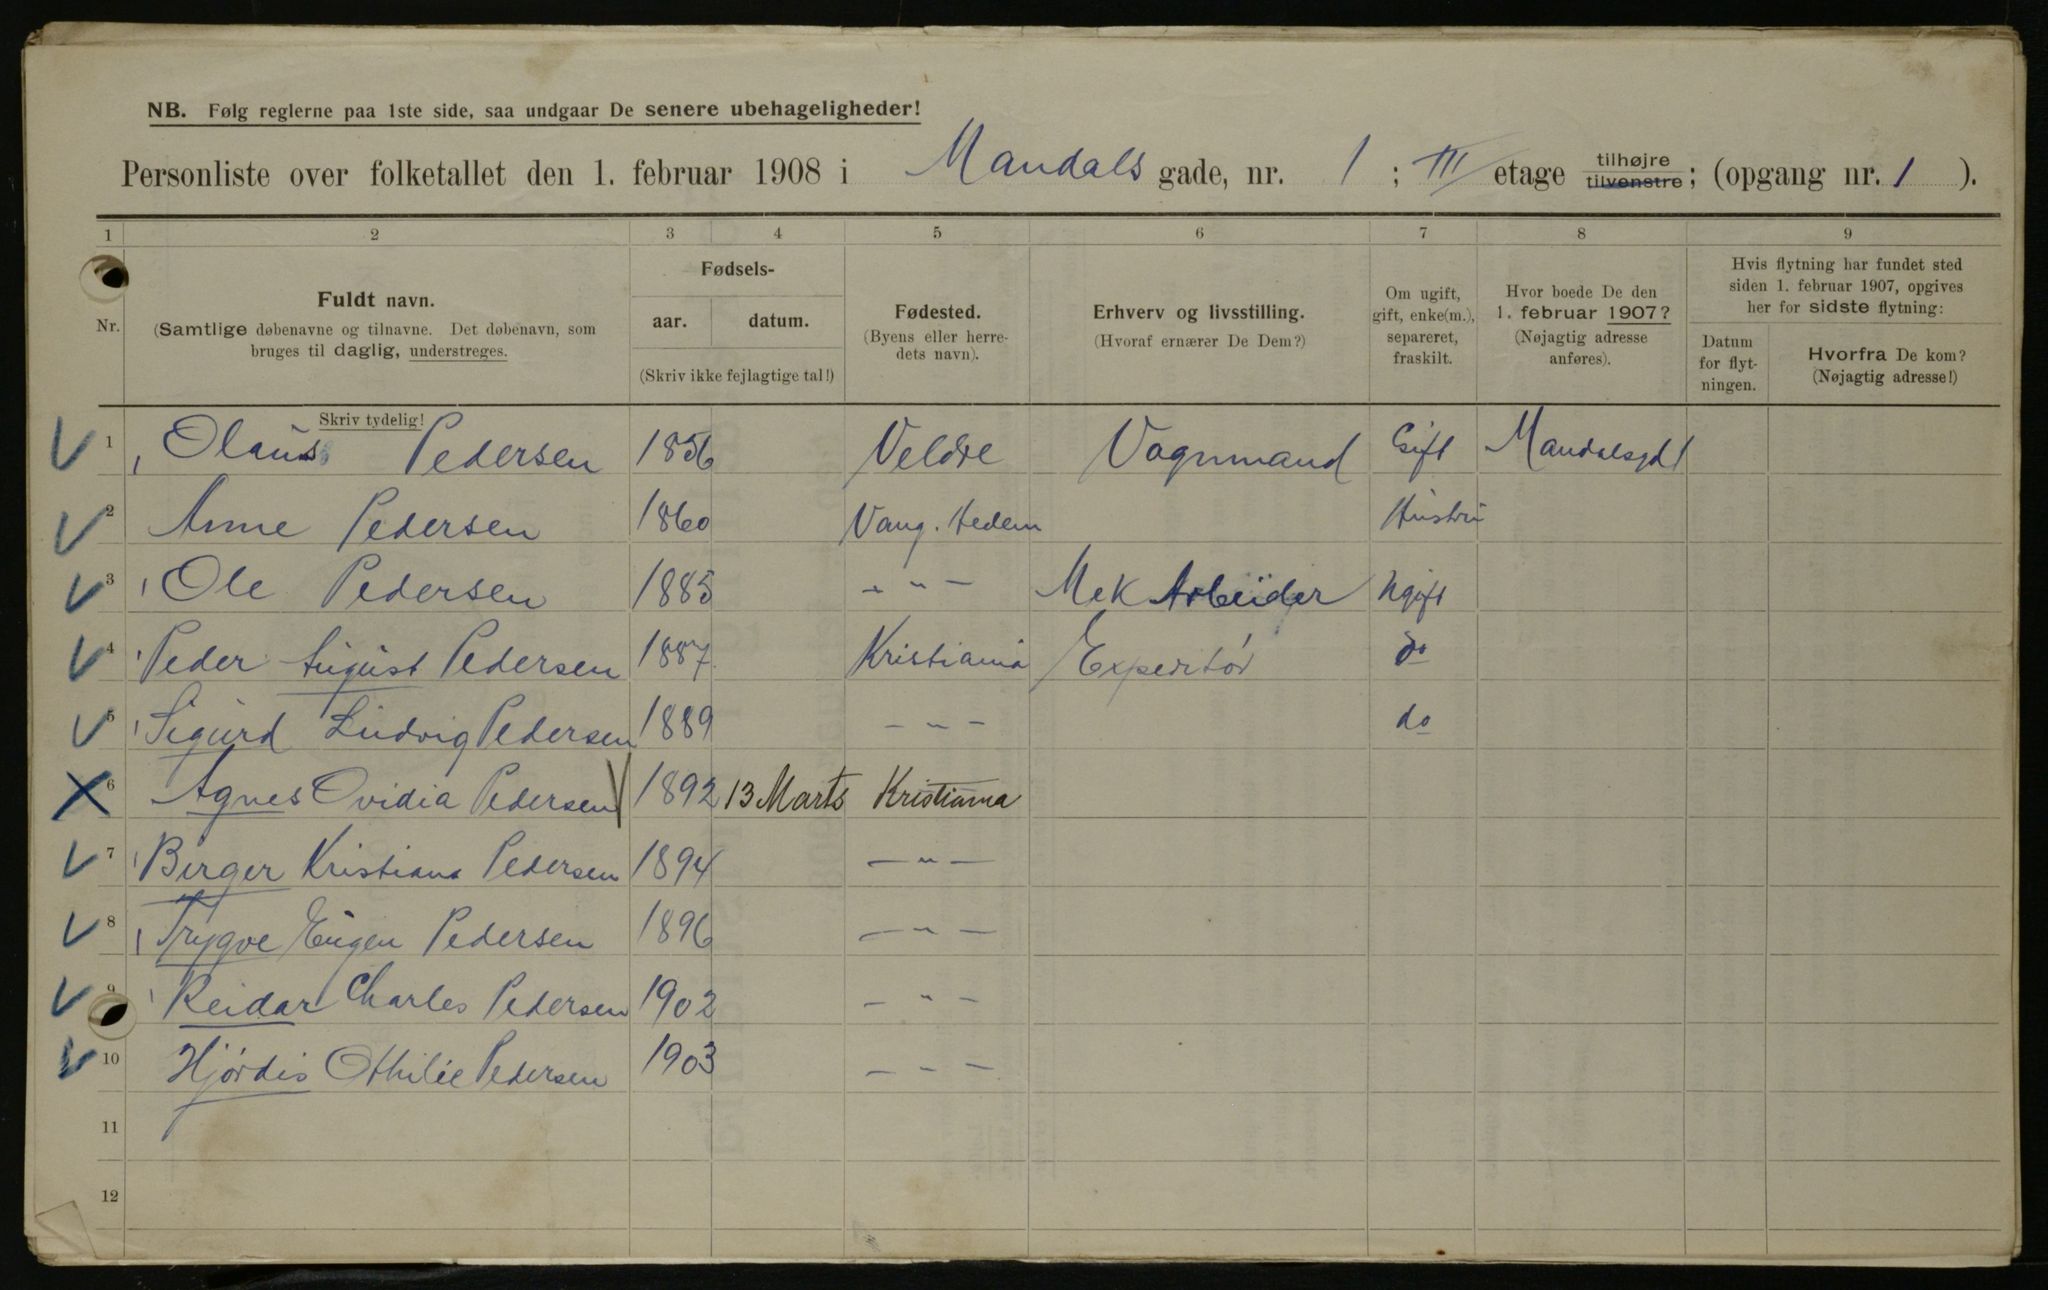 NB. Følg reglerne paa 1ste side, saa undgaar De senere ubehageligheder!
Personliste over folketallet den 1. februar 1908 i Mandals gade, nr. 1; III etage tilhøjre tilvenstre; (opgang nr. 1 ).
1 2 3 4 5 6 7 8 9
Nr.
Fuldt navn.
(Samtlige døbenavne og tilnavne. Det døbenavn, som
bruges til daglig, understreges.
Fødsels-
aar. datum.
(Skriv ikke fejlagtige tal!)
Fødested.
(Byens eller herre-
dets navn).
Erhverv og livsstilling.
(Hvoraf ernærer De Dem?)
Om ugift,
gift, enke(m.),
separeret,
fraskilt.
Hvor boede De den
1. februar 1907?
(Nøjagtig adresse
anføres).
Hvis flytning har fundet sted
siden 1. februar 1907, opgives
her for sidste flytning:
Datum
for flyt-
ningen.
Hvorfra De kom?
(Nøjagtig adresse!)
Skriv tydelig!
1 Olaus Pedersen 1856 Veldre Vognmand Gift Mandalsgd 1
2 Anne Pedersen 1860 Vang. Hedem Hustru
3 Ole Pedersen 1885 - " - Mek Arbeider Ugift
4 Peder August Pedersen 1887 Kristiania Expeditør do
5 Sigurd Ludvig Pedersen 1889 - " - do
6 Agnes Ovidia Pedersen 1892 13 Marts Kristiania
7 Birger Kristians Pedersen 1894 - " -
8 Trygve Eugen Pedersen 1896 - " -
9 Reidar Charles Pedersen 1902 - " -
10 Hjørdis Othilie Pedersen 1903 - " -
11
12